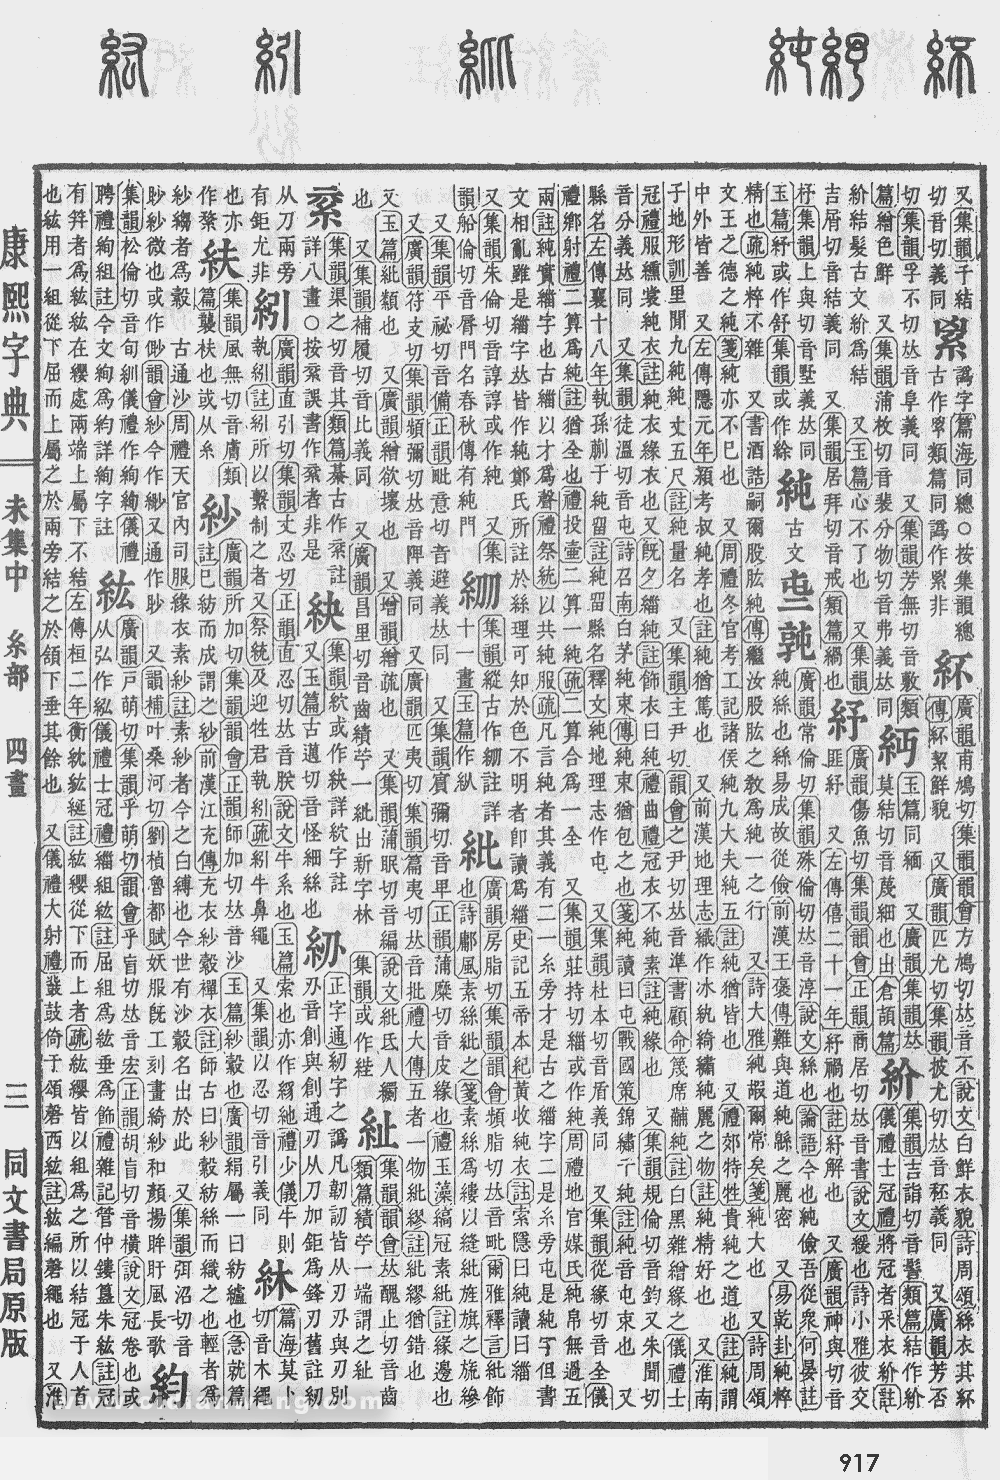 又集韻千結切音切義同
譌字篇海同總○按集韻總古作 類篇同譌作累非
紑 廣韻甫鳩切集韻韻會方鳩切𠀤音不說文白鮮衣貌詩周頌絲衣其紑
傳紑絜鮮貌 又廣韻匹尤切集韻披尤切𠀤音秠義同 又廣韻芳否
切集韻孚不切𠀤音阜義同 又集韻芳無切音敷類
篇繒色鮮 又集韻蒲枚切音裴分物切音弗義𠀤同
玉篇同緬 又廣韻集韻𠀤莫結切音蔑細也出倉頡篇
紒 集韻吉詣切音髻類篇結作紒儀禮士冠禮將冠者采衣紒註
紒結髮古文紒爲結 又玉篇心不了也 又集韻
吉屑切音結義同 又集韻居拜切音戒類篇綗也
紓 廣韻傷魚切集韻韻會正韻商居切𠀤音書說文緩也詩小雅彼交
匪紓 又左傳僖二十一年紓禍也註紓解也 又廣韻神與切音
杼集韻上與切音墅義𠀤同
玉篇紓或作舒集韻或作絵
純 古文 廣韻常倫切集韻殊倫切𠀤音淳說文絲也論語今也純儉吾從衆何晏註
純絲也絲易成故從儉前漢王襃傳難與道純緜之麗密 又易乾卦純粹
精也疏純粹不雜 又書酒誥嗣爾股肱純傳繼汝股肱之敎爲純一之行 又詩大雅純嘏爾常矣箋純大也 又詩周頌
文王之德之純箋純亦不已也 又周禮冬官考工記諸侯純九大夫純五註純猶皆也 又禮郊特牲貴純之道也註純謂
中外皆善 又左傳隱元年潁考叔純孝也註純猶篤也 又前漢地理志織作冰紈綺繡純麗之物註純精好也 又淮南
子地形訓里閒九純純丈五尺註純量名 又集韻主尹切韻會之尹切𠀤音準書顧命篾席黼純註白黑雜繒緣之儀禮士
冠禮服纁裳純衣註純衣緣衣也又旣夕緇純註飾衣曰純禮曲禮冠衣不純素註純緣也 又集韻規倫切音鈞又朱聞切
音分義𠀤同 又集韻徒溫切音屯詩召南白茅純束傳純束猶包之也箋純讀曰屯戰國策錦繡千純註純音屯束也 又
縣名左傳襄十八年執孫蒯于純留註純留縣名釋文純地理志作屯 又集韻杜本切音盾義同 又集韻從緣切音全儀
禮鄉射禮二算爲純註純猶全也禮投壺二算一純疏二算合爲一全 又集韻莊持切緇或作純周禮地官媒氏純帛無過五
兩註純實緇字也古緇以才爲聲禮祭統以共純服疏凡言純者其義有二一糸旁才是古之緇字二是糸旁屯是純字但書
文相亂雖是緇字𠀤皆作純鄭氏所註於絲理可知於色不明者卽讀爲緇史記五帝本紀黃收純衣註索隱曰純讀曰緇
又集韻朱倫切音諄諄或作純 又集
韻船倫切音脣門名春秋傳有純門
集韻縱古作 註詳十一畫玉篇作紁
紕 廣韻房脂切集韻韻會頻脂切𠀤音毗爾雅釋言紕飾
也詩鄘風素絲紕之箋素絲爲縷以縫紕旌旗之旒縿
又集韻平祕切音備正韻毗意切音避義𠀤同 又集韻賓彌切音卑正韻蒲糜切音皮緣也禮玉藻縞冠素紕註緣邊也
又廣韻符支切集韻頻彌切𠀤音陴義同 又廣韻匹夷切集韻篇夷切𠀤音批禮大傳五者一物紕繆註紕繆猶錯也
又玉篇紕類也 又廣韻繒欲壞也 又增韻繒疏也 又集韻蒲眠切音編說文紕氏人繝
也 又集韻補履切音匕義同 又廣韻昌里切音齒績苧一紕出新字林 集韻或作㱔
紪 集韻韻會𠀤醜止切音齒
類篇績苧一端謂之紪
集韻渠之切音其類篇綦古作 註
詳八畫○按 誤書作 者非是
紻 集韻紋或作紻詳紋字註
又玉篇古邁切音怪細絲也
正字通紉字之譌凡韌訒皆从刃刅與刃別
刅音創與創通刃从刀加鉅爲鋒刃舊註紉
从刀兩旁有鉅尤非
紖 廣韻直引切集韻丈忍切正韻直忍切𠀤音朕說文牛系也玉篇索也亦作 禮少儀牛則
執紖註紖所以繫制之者又祭統及迎牲君執紖疏紖牛鼻繩 又集韻以忍切音引義同
篇海莫卜切音木繩
也亦作
紨 集韻風無切音膚類篇襲 也或从糸
紗 廣韻所加切集韻韻會正韻師加切𠀤音沙玉篇紗縠也廣韻絹屬一曰紡纑也急就篇
註已紡而成謂之紗前漢江充傳充衣紗縠襌衣註師古曰紗縠紡絲而織之也輕者爲
紗縐者爲縠 古通沙周禮天官內司服緣衣素紗註素紗者今之白縛也今世有沙縠名出於此 又集韻弭沼切音
眇紗微也或作 韻會紗今作紗又通作眇 又韻補叶桑河切劉楨魯都賦妖服旣工刻畫綺紗和顏揚眸盱風長歌
紃
集韻松倫切音旬紃儀禮作絇絢儀禮
聘禮絇組註今文絢爲約詳絢字註
紘 廣韻戸萌切集韻乎萌切韻會乎盲切𠀤音宏正韻胡盲切音橫說文冠卷也或
从弘作紭儀禮士冠禮緇組紘註屈組爲紘垂爲飾禮雜記管仲鏤簋朱紘註冠
有笄者爲紘紘在纓處兩端上屬下不結左傳桓二年衡紞紘綖註紘纓從下而上者疏紘纓皆以組爲之所以結冠于人首
也紘用一組從下屈而上屬之於兩旁結之於頷下垂其餘也 又儀禮大射禮鼗鼓倚于頌磬西紘註紘編磬繩也 又淮
康熙字典
未集中 糸部 四畫
三
同文書局原版
917